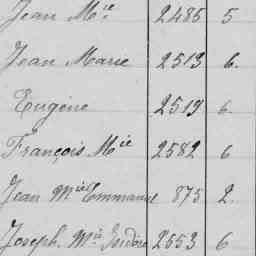 Jean Mie 2485 5
Jean Marie 2513 6.
Eugène 2519 6.
François Mie 2582 6
Jean Mie Emmanuel 875 2.
Joseph Mie Isidore 2553 6